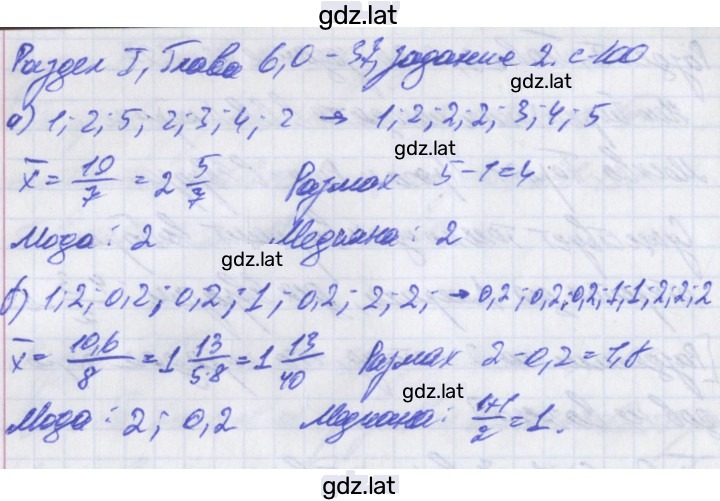 gdz.lat
Раздел I, Глава 6, О-37, задание 2. с-100
gdz.lat
а) 1; 2; 5; 2; 3; 4; 2 → 1; 2; 2; 2; 3; 4; 5
gdz.lat
x̄ = 10/7 = 2 5/7 Размах 5-1=4
Мода: 2 Медиана: 2
gdz.lat
б) 1; 2; 0,2; 0,2; 1; 0,2; 2; 2; → 0,2; 0,2; 0,2; 1; 1; 2; 2; 2
gdz.lat
x̄ = 10,6/8 = 1 13/5·8 = 1 13/40 Размах 2-0,2=1,8
gdz.lat
Мода: 2; 0,2 Медиана: 1+1/2 = 1.
gdz.lat